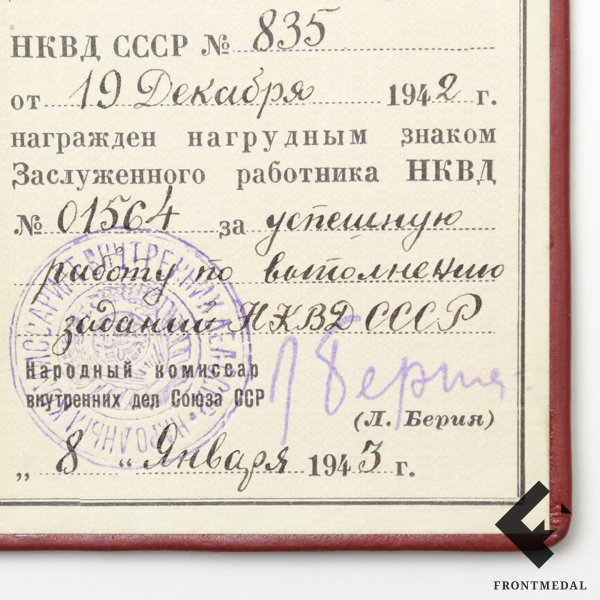 НКВД СССР № 835
от 19 Декабря 1942 г.
награжден нагрудным знаком
Заслуженного работника НКВД
№ 01564 за успешную
работу по выполнению
заданий НКВД СССР
Народный комиссар
внутренних дел Союза ССР
Л Берия
(Л. Берия)
„ 8 “ Января 1943 г.
FRONTMEDAL